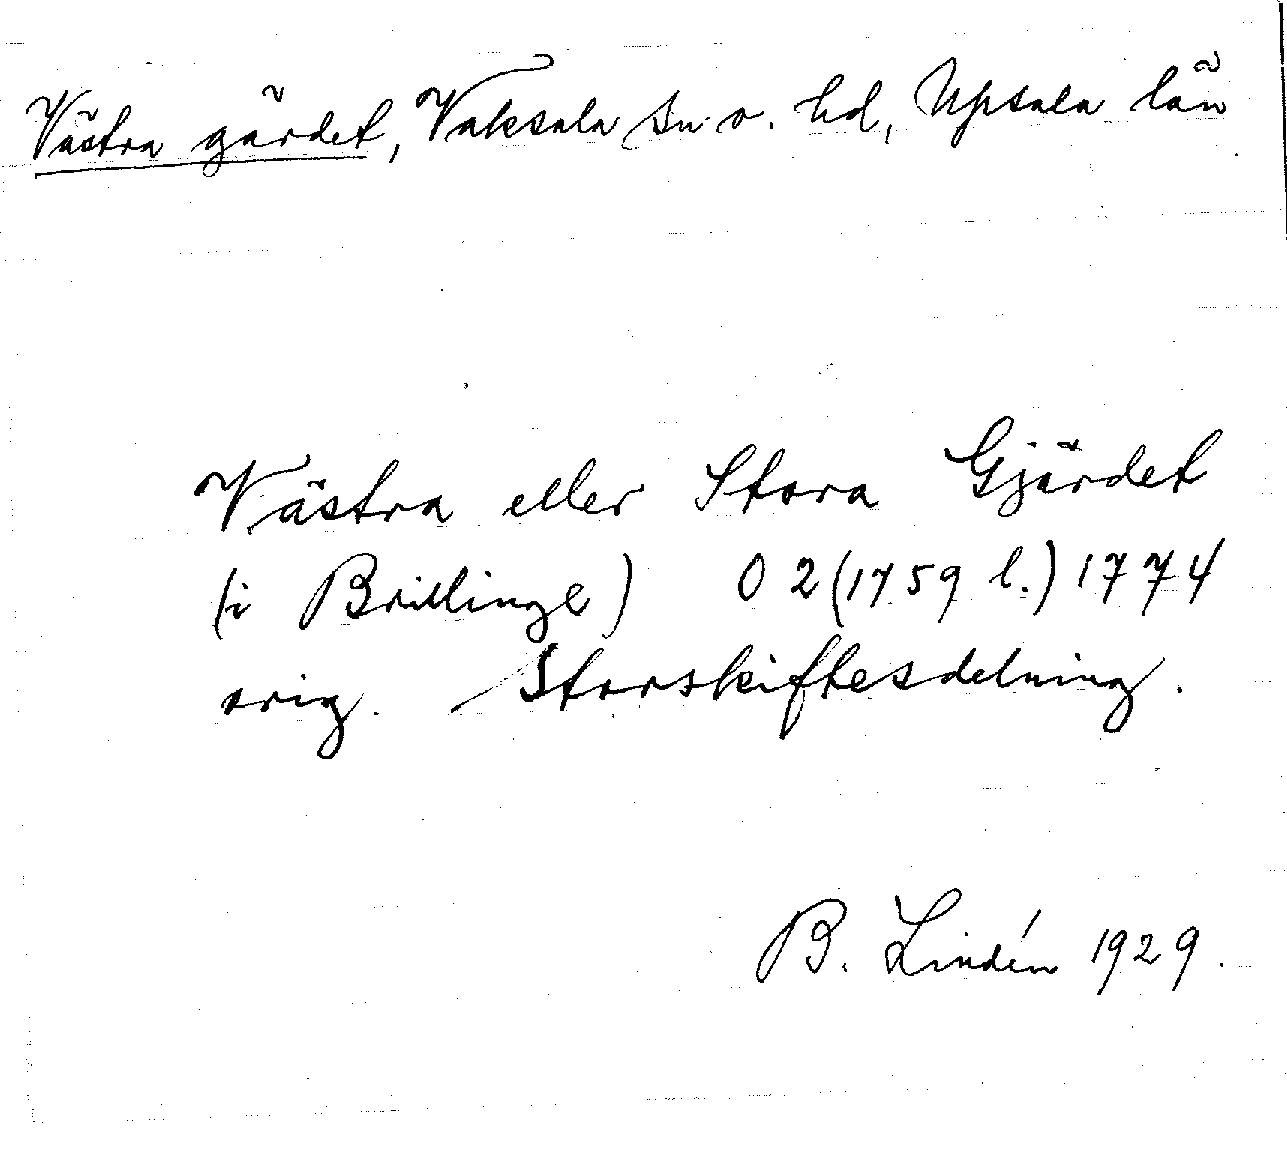 Västra gärdet, Vaksala sn o. hd, Upsala län
Västra eller Stora Gjärdet
(i Brillinge) O 2 (1759 l.) 1774
orig. Storskiftesdelning.
B. Lindén 1929.